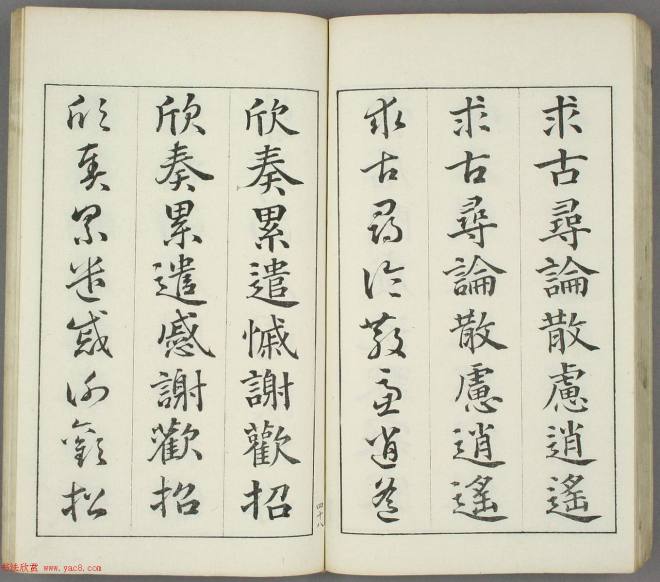 求古尋論散慮逍遙
求古尋論散慮逍遙
求古尋論散慮逍遙
四十八
欣奏累遣慽謝歡招
欣奏累遣慼謝歡招
欣奏累遣慼謝歡招
书法欣赏 www.yac8.com